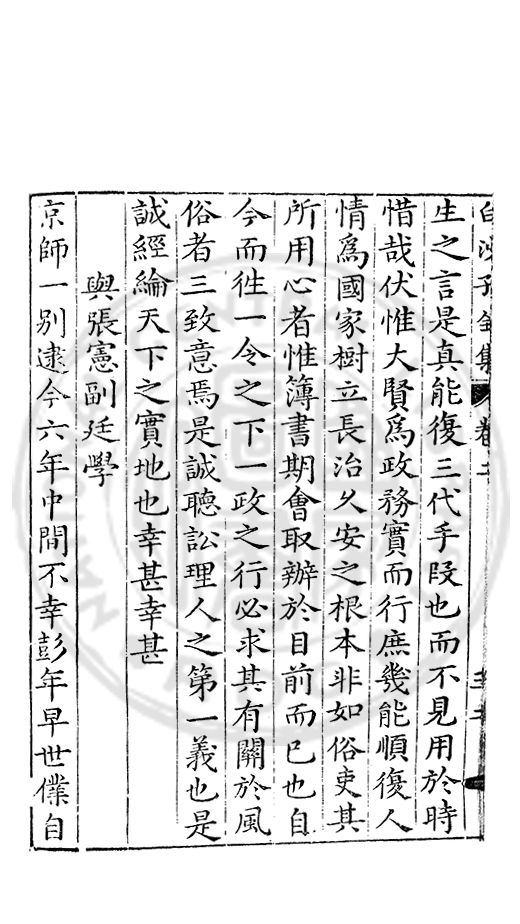 白沙子全集 卷之二
生之言是真能復三代手段也而不見用於時
惜哉伏惟大賢爲政務實而行庶幾能順復人
情爲國家樹立長治久安之根本非如俗吏其
所用心者惟簿書期會取辦於目前而已也自
今而徃一令之下一政之行必求其有關於風
俗者三致意焉是誠聽訟理人之第一義也是
誠經綸天下之實地也幸甚幸甚
與張憲副廷學
京師一别逮今六年中間不幸彭年早世僕自